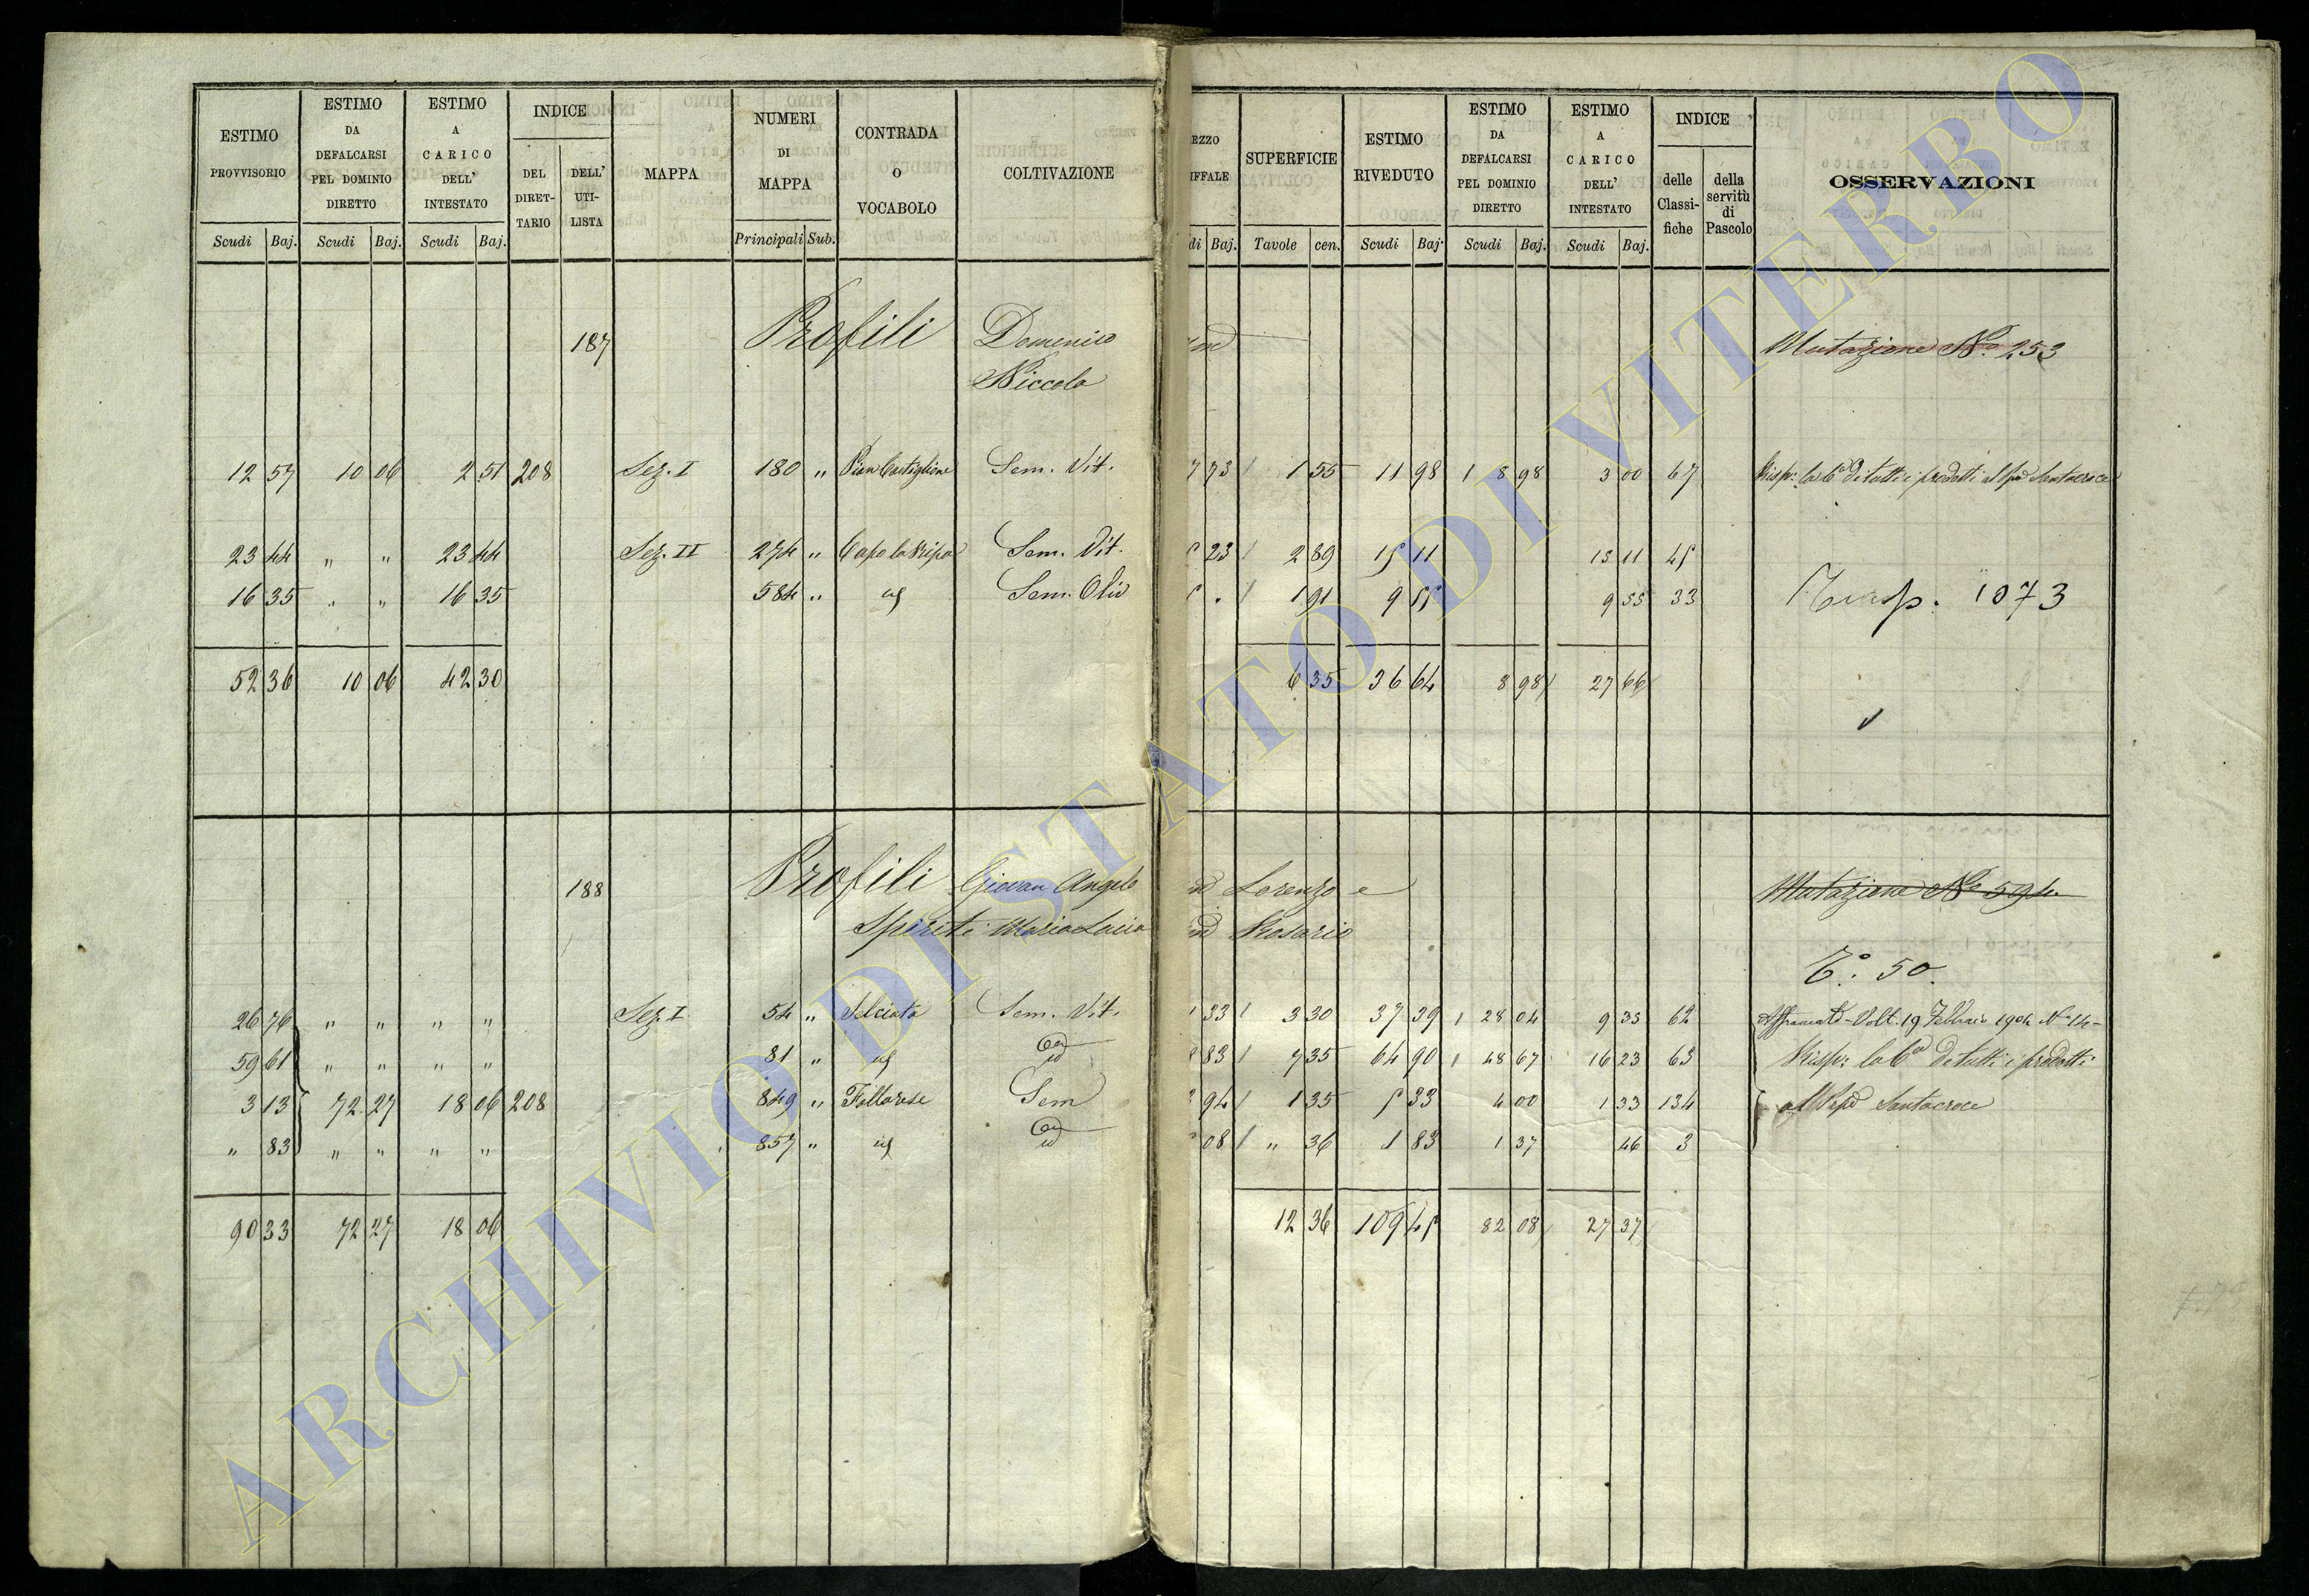 ESTIMO PROVVISORIO | ESTIMO DA DEFALCARSI PEL DOMINIO DIRETTO | ESTIMO A CARICO DELL' INTESTATO | INDICE | MAPPA | NUMERI DI MAPPA | CONTRADA O VOCABOLO | COLTIVAZIONE | EZZO IFFALE | SUPERFICIE | ESTIMO RIVEDUTO | ESTIMO DA DEFALCARSI PEL DOMINIO DIRETTO | ESTIMO A CARICO DELL' INTESTATO | INDICE | OSSERVAZIONI
DEL DIRETTARIO | DELL' UTILISTA | delle Classifiche | della servitù di Pascolo
Scudi | Baj. | Scudi | Baj. | Scudi | Baj. | Principali | Sub. | di | Baj. | Tavole | cen. | Scudi | Baj. | Scudi | Baj. | Scudi | Baj.
187 Profili Domenico Mutazione N.º 253
Niccola
12 57 10 06 2 51 208 Sez. I 180 " Pian Castiglione Sem. Vit. 73 1 55 11 98 8 98 3 00 67 Risp: la di tutti i prodotti al Santacroce
23 44 " " 23 44 Sez. II 274 " Capo la Ripa Sem. Vit. 23 2 89 15 11 15 11 45
16 35 " " 16 35 584 " id Sem. Oliv 1 91 9 55 9 55 33 Trasp. 1073
52 36 10 06 42 30 6 35 36 64 8 98 27 66
188 Profili Giovan Angelo Lorenzo e Mutazione Nº 594
Spiriti Maria Lucia Rosario
Tº: 50.
26 76 " " " " Sez. I 54 " Selciata Sem. Vit. 33 3 30 37 39 28 04 9 35 62 Volt. 19 Febbraio 1904 N. 14
59 61 " " " " 81 " id id 83 7 35 64 90 48 67 16 23 63 Risp: la di tutti i prodotti
3 13 72 27 18 06 208 849 " Follarese Sem 94 1 35 5 33 4 00 1 33 134 al Santacroce
" 83 " " " " 857 " id id 08 " 36 1 83 1 37 46 3
90 33 72 27 18 06 12 36 109 45 82 08 27 37
ARCHIVIO DI STATO DI VITERBO